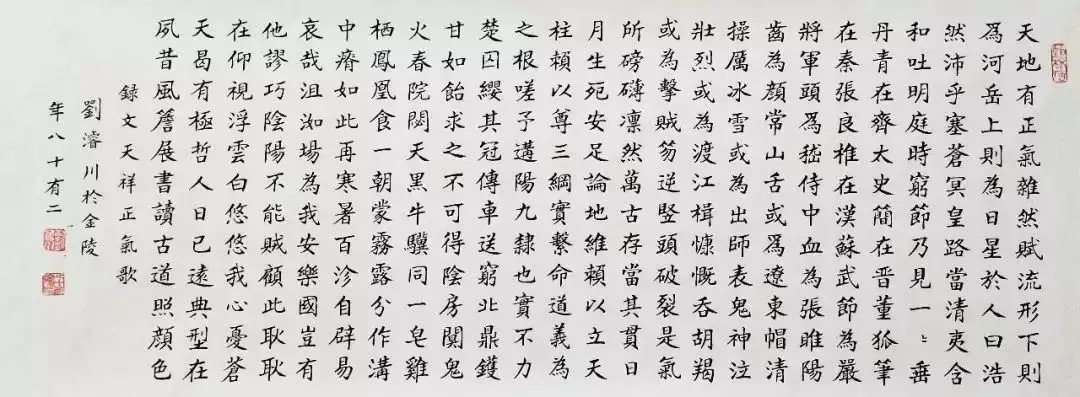 天地有正氣雜然賦流形下則
爲河岳上則為日星於人曰浩
然沛乎塞蒼冥皇路當清夷含
和吐明庭時窮節乃見一〻垂
丹青在齊太史簡在晉董狐筆
在秦張良椎在漢蘇武節為嚴
將軍頭爲嵇侍中血為張睢陽
齒為顏常山舌或爲遼東帽清
操厲冰雪或為出師表鬼神泣
壯烈或為渡江楫慷慨吞胡羯
或為擊賊笏逆豎頭破裂是氣
所磅礡凛然萬古存當其貫日
月生死安足論地維賴以立天
柱賴以尊三綱實繫命道義為
之根嗟予遘陽九隸也實不力
楚囚纓其冠傳車送窮北鼎鑊
甘如飴求之不可得陰房闃鬼
火春院閟天黑牛驥同一皂雞
栖鳳凰食一朝蒙霧露分作溝
中瘠如此再寒暑百沴自辟易
哀哉沮洳場為我安樂國豈有
他謬巧陰陽不能賊顧此耿耿
在仰視浮雲白悠悠我心憂蒼
天曷有極哲人日已遠典型在
夙昔風簷展書讀古道照顔色
録文天祥正氣歌
劉濬川於金陵
年八十有二